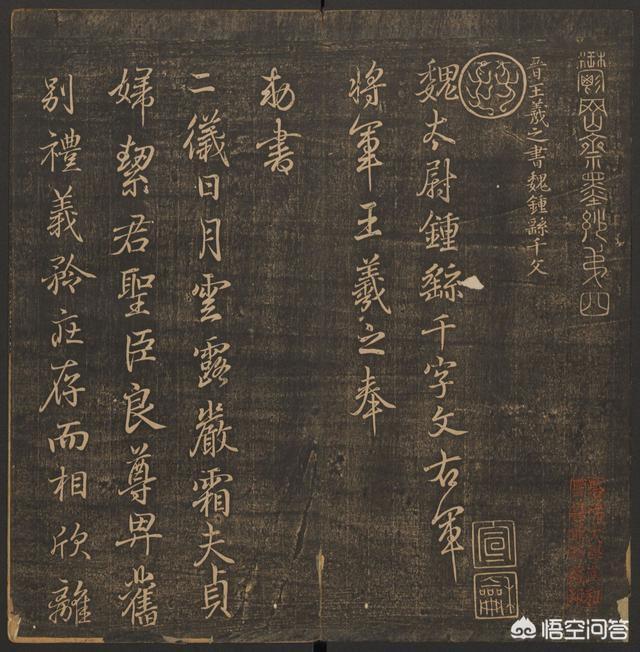 鬱岡齋墨妙弟四
晉王羲之書魏鍾繇千文
魏太尉鍾繇千字文右軍
將軍王羲之奉
勑書
二儀日月雲露嚴霜夫貞
婦絜君聖臣良尊卑舊
別禮義矜莊存而相欣離
宣龢
悟空问答